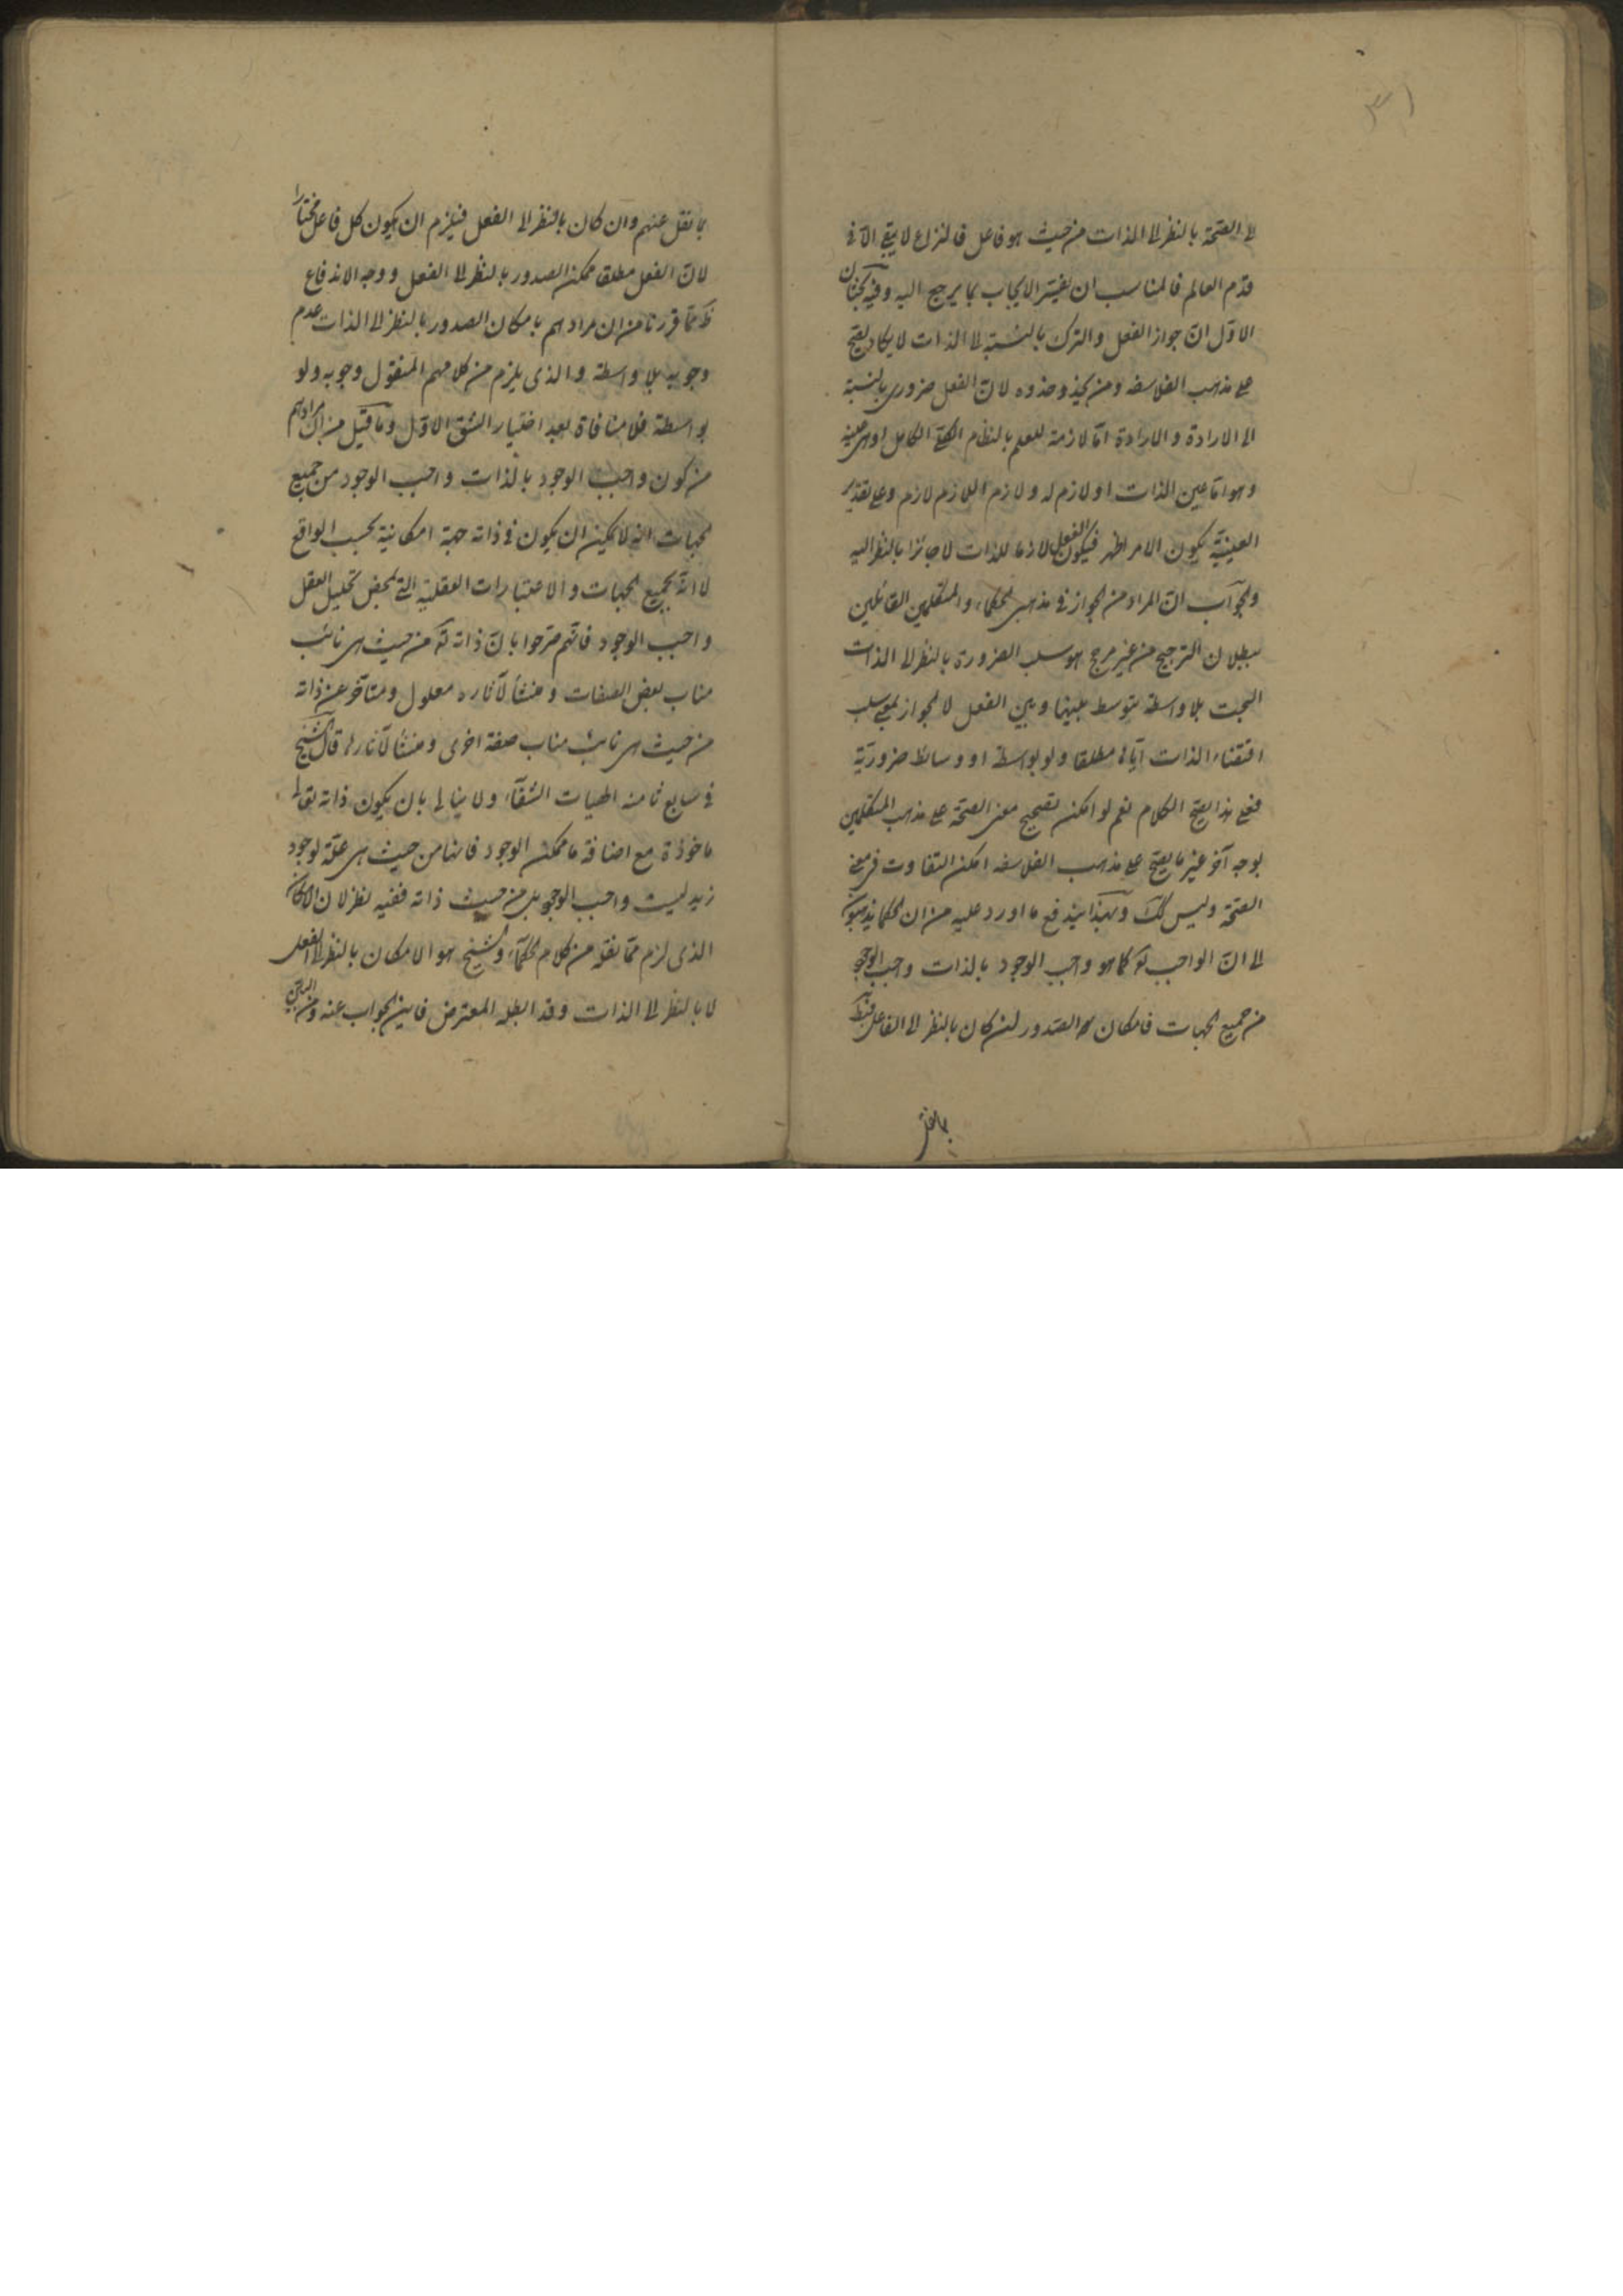 ٣١
لى الصحة بالنظر الى الذات من حيث هو فاعل فالنزاع لا يبقى الا فى
قدم العالم فالمناسب ان يفسر الايجاب بما يرجع اليه وفيه بحثان
الاول ان جواز الفعل والترك بالنسبة الى الذات لا يكاد يصح
على مذهب الفلاسفه ومن يحذو حذوه لان الفعل ضرورى بالنسبة
الى الارادة والارادة اما لازمة للعلم بالنظام الكامل او هى عينه
وهو اما عين الذات او لازم له ولازم اللازم لازم وعلى تقدير
العينية يكون الامر اظهر فيكون الفعل لازما للذات لا جائزا بالنظر اليه
والجواب ان المراد من الجواز فى مذهبى الحكماء والمتكلمين القائلين
ببطلان الترجيح من غير مرجح هو سلب الضرورة بالنظر الى الذات
البحت بلا واسطة يتوسط بينها وبين الفعل لا الجواز بمعنى سلب
اقتضاء الذات اياه مطلقا ولو بواسطة او وسائط ضرورية
فعلى هذا يصح الكلام نعم لو امكن تصحيح معنى الصحة على مذهب المتكلمين
بوجه آخر غير ما يصح على مذهب الفلاسفه امكن التفاوت فى معنى
الصحة وليس كك وبهذا يندفع ما اورد عليه من ان الحكما يذهبون
الى ان الواجب تع كما هو واجب الوجود بالذات واجب الوجود
من جميع الجهات فامكان الصدور لئن كان بالنظر الى الفاعل
بما نقل
بما نقل عنهم وان كان بالنظر الى الفعل فيلزم ان يكون كل فاعل مختارا
لان الفعل مطلقا ممكن الصدور بالنظر الى الفعل ووجه الاندفاع
ظ مما قررنا من ان مرادهم بامكان الصدور بالنظر الى الذات عدم
وجوبه بلا واسطة والذى يلزم من كلامهم المنقول وجوبه ولو
بواسطة فلا منافاة بعد اختيار الشق الاول وما قيل من ان مرادهم
من كون واجب الوجود بالذات واجب الوجود من جميع
الجهات انه لا يمكن ان يكون فى ذاته جهة امكانية بحسب الواقع
لا انه بجميع الجهات والاعتبارات العقلية التى بمحض تحليل العقل
واجب الوجود فانهم صرحوا بان ذاته تع من حيث هى نائب
مناب بعض الصفات ومنشأ لآثاره معلول ومتأخر عن ذاته
من حيث هى نائب مناب صفة اخرى ومنشأ لآثارها قال الشيخ
فى سابع ثامنه الهيات الشفآء ولا يبالى بان يكون ذاته تعالى
ماخوذة مع اضافة ما ممكن الوجود فانها من حيث هى علة لوجود
زيد ليست واجب الوجود بل من حيث ذاته ففيه نظر لان الامكان
الذى لزم مما نقله من كلام الحكمآء والشيخ هو الامكان بالنظر الى الفعل
لا بالنظر الى الذات وقد ابطله المعترض فاين الجواب عنه ومن البين